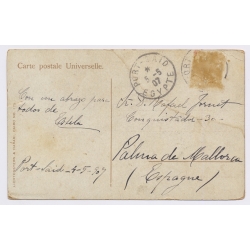 Carte postale Universelle.
PORT SAID
5
07
EGYPTE
Con un abrazo para
todos de
Port-Said 4-5-07
Sr. D. Rafael Forset
Conquistador-30-
Palma de Mallorca
(Espagne)